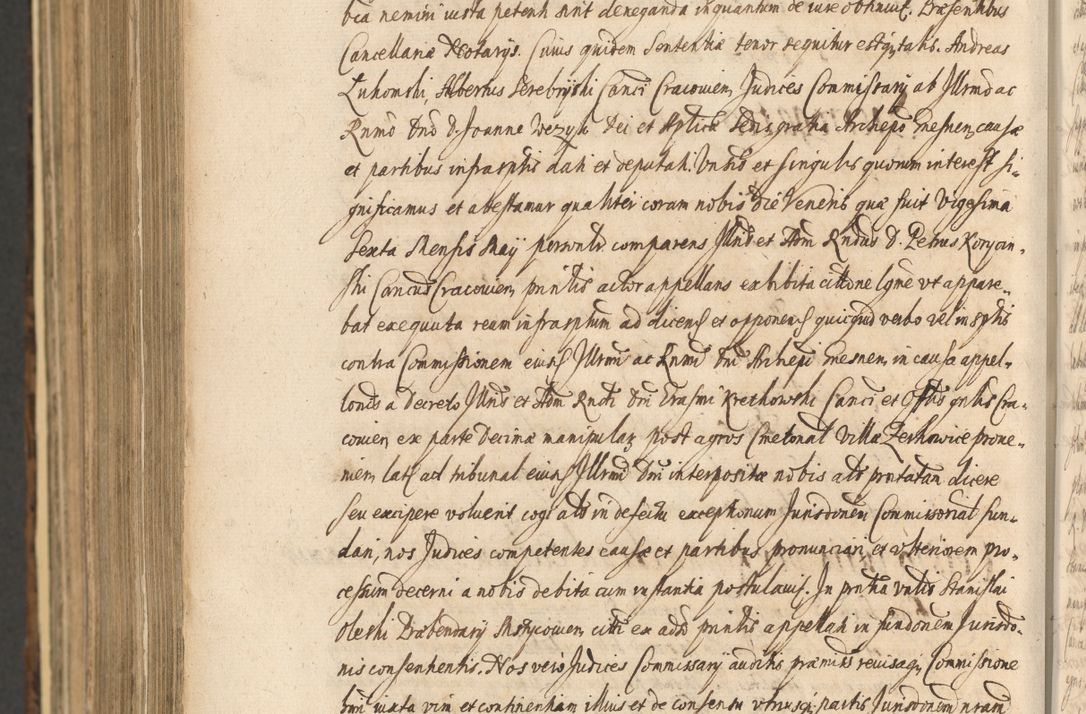 bca nemini iusta petenti sint deneganda inquantum de iure obtinuit. Præsentibus
Cancellariæ Notarijs. Cuius quidem Sententiæ tenor sequitur estq talis. Andreas
Lukomski, Albertus Serebryski Canci Cracouien Judices Commissarij ab Jllrmo ac
Rnmo Dno D. Joanne Wezyk Dei et Aplicæ Sedis gratia Archiepo Gnesnen, causæ
et partibus infrascriptis dati et deputati. Vnits et singulis quorum interest si-
gnificamus et attestamur qualiter coram nobis die Veneris quæ fuit Vigesima
Sexta Mensis Maij personlr comparens Jllris et Adm Rndus D. Petrus Koryciń-
ski Cancus Cracouien, principalis actor appellans exhibita citone lgme vt appare-
bat exequuta reum infrascptum ad dicens et opponens quicquid verbo vel in scptis
contra Commissionem eiusd Jllrmi ac Rnmi Dni Archiepi Gnesnen, in causa appel-
lonis a Decreto Jllris et Adm Rndi Dni Erasmi Kretkowski Canci et Offlis gnlis Cra-
couien, ex parte Decimæ manipulaz post agros Cmetonal Villæ Zerkowice prone-
nien, lati ad tribunal eiusd Jllrmi Dni interpositæ nobis als præsentatam dicere
seu excipere voluerit cogi als in defectu exceptionum Jurisdonem Commissorial fun-
dari, nos Judices competentes causæ et partibus pronunciari et vlteriorem pro-
cessum decerni a nobis debita cum instantia postulauit. In pntia Vnlis Stanislai
Oleski Præbendarij Mstycouien, citti ex ads principalis appellati in fundonem Jurisdo-
nis consentientis. Nos vero Judices Commissarij auditis præmissis reuisaq Commissione
nra iuxta vim et continentiam illius et de consensu vtriusq partis Jurisdonem nram